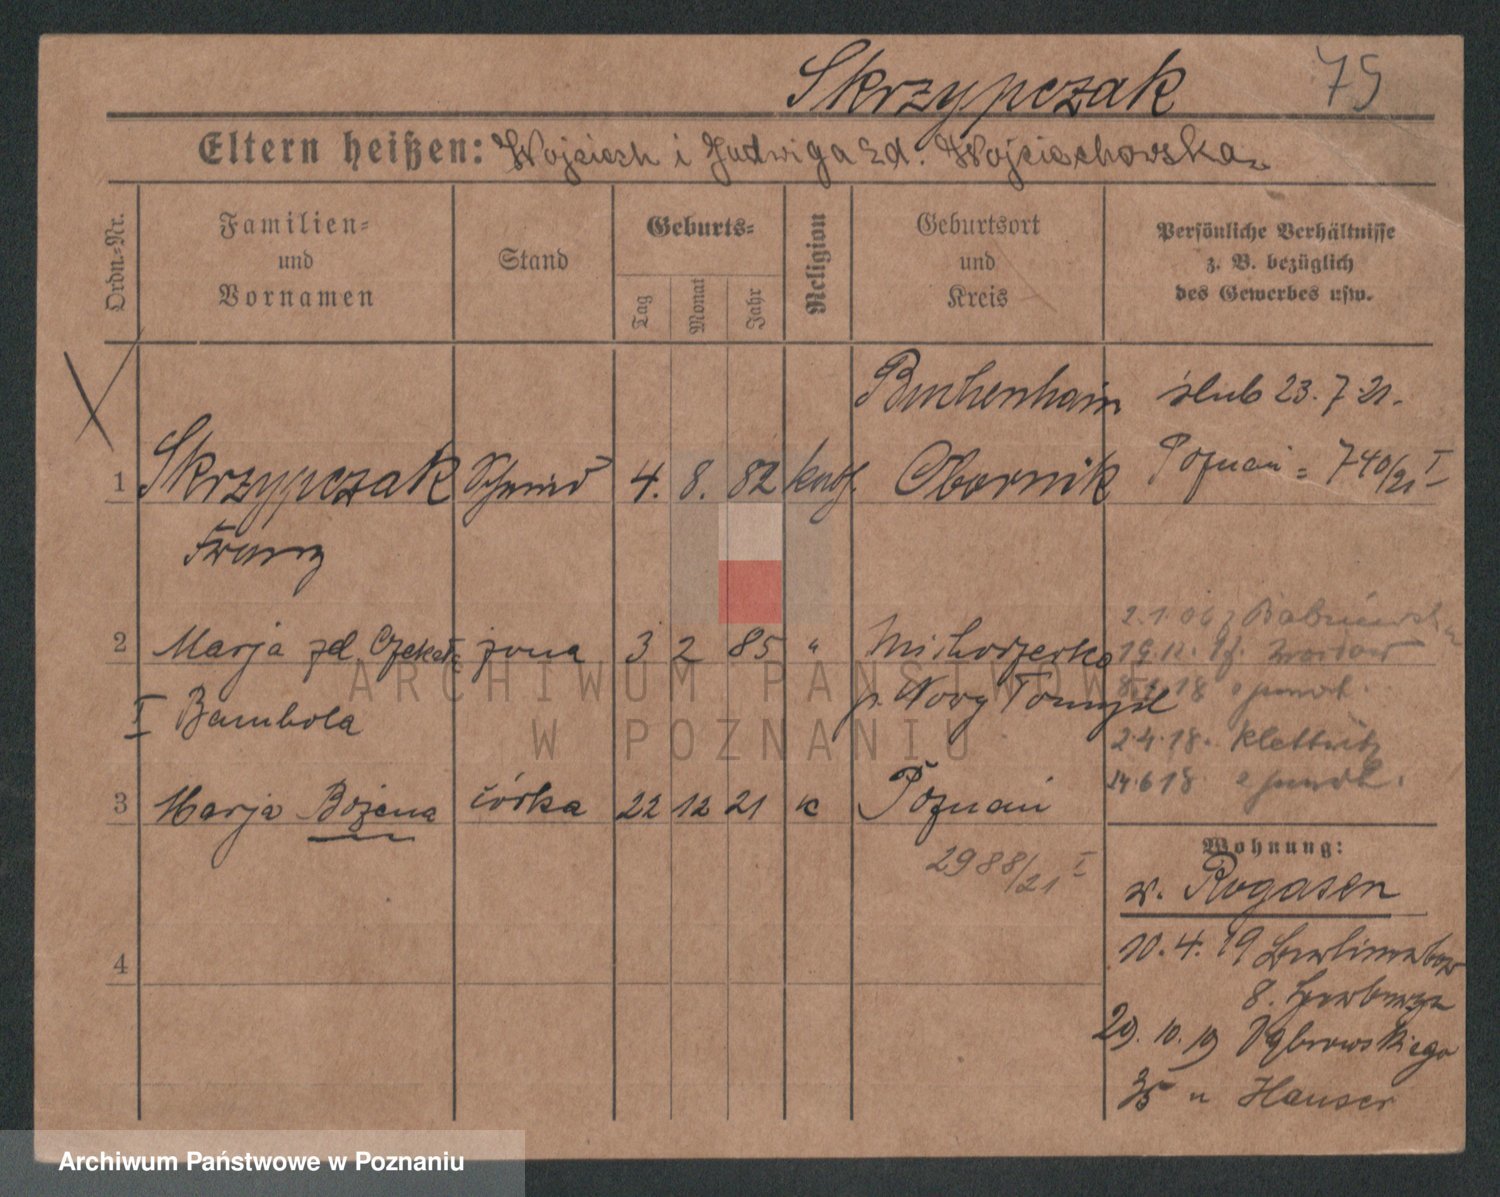 Skrzypczak 75
Eltern heißen: Wojciech i Jadwiga zd. Wojciechowska
Ordn.-Nr.
Familien-
und
Vornamen
Stand
Geburts-
Tag
Monat
Jahr
Religion
Geburtsort
und
Kreis
Persönliche Verhältnisse
z. B. bezüglich
des Gewerbes usw.
Buchenhain ślub 23.7.21.
1 Skrzypczak Schmied 4. 8. 82 kath. Obornik Poznań = 740/21 I
Franz
2 Marja zd. żona 3 2 85 "
p. Nowy Tomyśl
I Bambola
2.1.06 z
19.11.
8. 18
2.4.18. Klettwitz
14.6.18
3 Marja Bożena córka 22 12 21 k Poznań
2988/21 I
4
Wohnung:
v. Rogasen
10.4.19
8.
29.10.19 Dąbrowskiego
35 u Hauser
ARCHIWUM PAŃSTWOWE
W POZNANIU
Archiwum Państwowe w Poznaniu